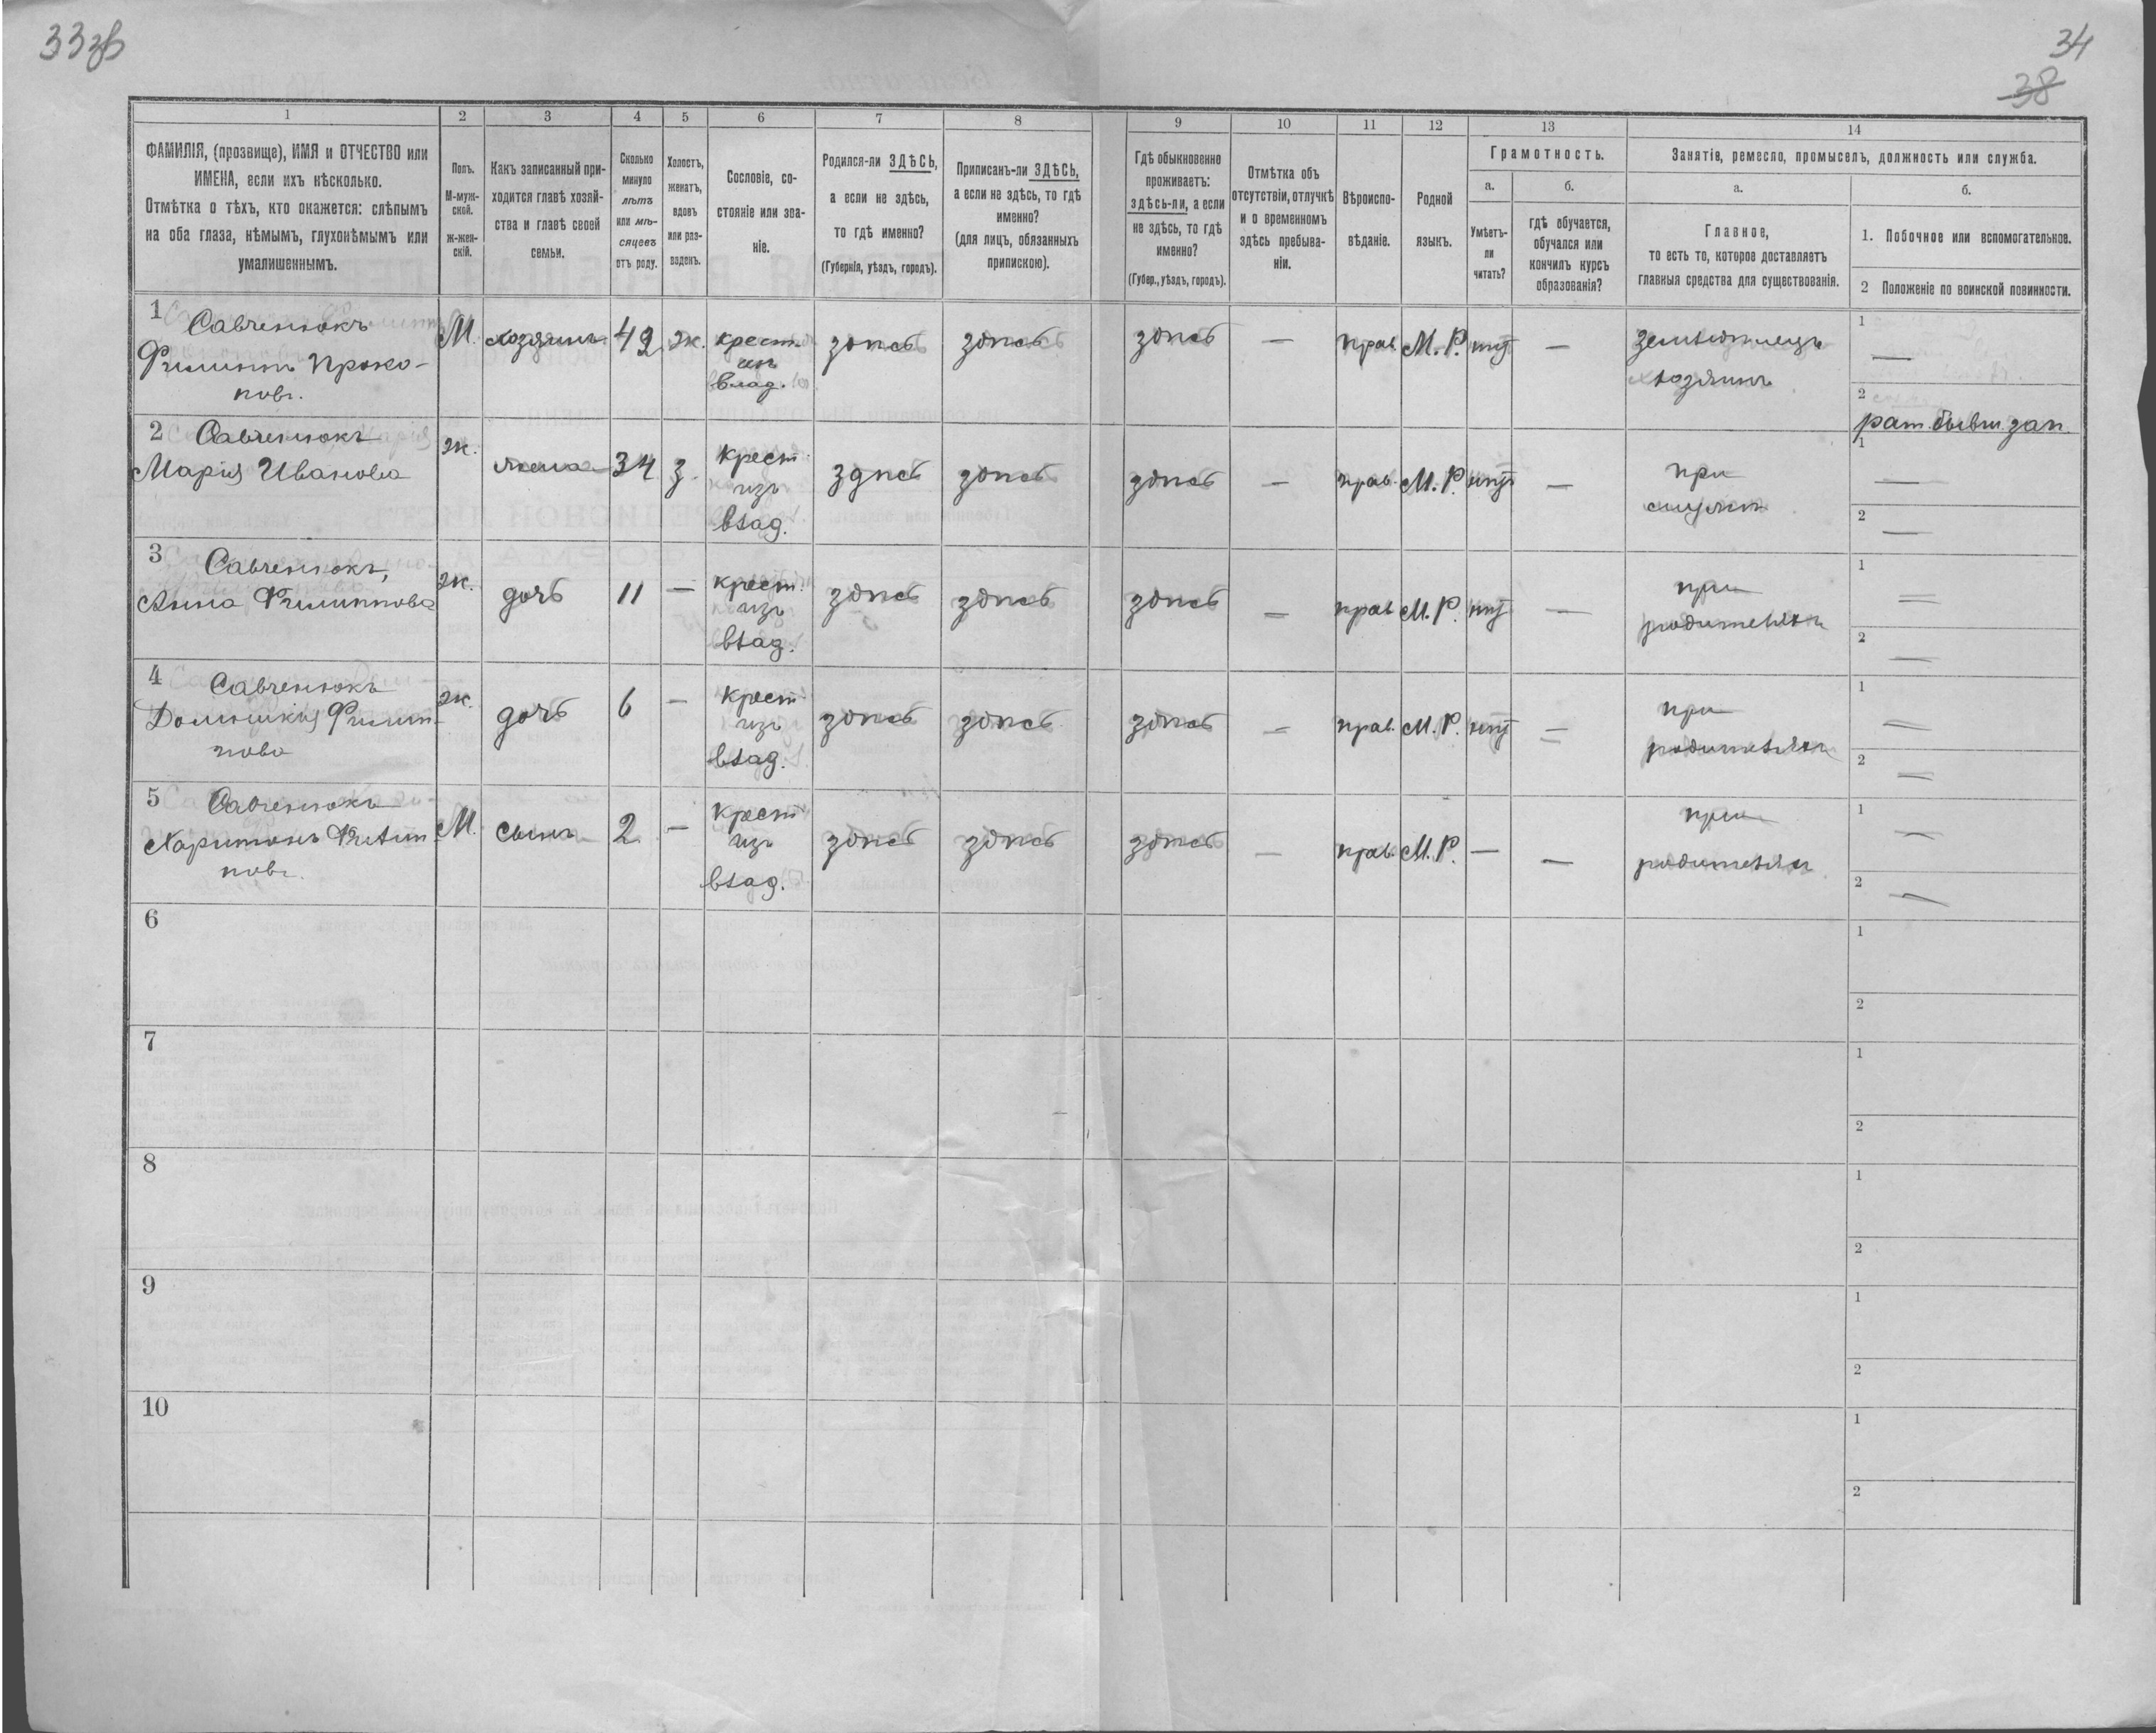 33зв
34
38
1
2
3
4
5
6
7
8
9
10
11
12
13
14
ФАМИЛІЯ, (прозвище), ИМЯ и ОТЧЕСТВО или
ИМЕНА, если ихъ нѣсколько.
Отмѣтка о тѣхъ, кто окажется: слѣпымъ
на оба глаза, нѣмымъ, глухонѣмымъ или
умалишеннымъ.
Полъ.
М-муж-
ской.
ж-жен-
скій.
Какъ записанный при-
ходится главѣ хозяй-
ства и главѣ своей
семьи.
Сколько
минуло
лѣтъ
или мѣ-
сяцевъ
отъ роду.
Холостъ,
женатъ,
вдовъ
или раз-
веденъ.
Сословіе, со-
стояніе или зва-
ніе.
Родился-ли ЗДѢСЬ,
а если не здѣсь,
то гдѣ именно?
(Губернія, уѣздъ, городъ).
Приписанъ-ли ЗДѢСЬ,
а если не здѣсь, то гдѣ
именно?
(для лицъ, обязанныхъ
припискою).
Гдѣ обыкновенно
проживаетъ:
здѣсь-ли, а если
не здѣсь, то гдѣ
именно?
(Губер., уѣздъ, городъ).
Отмѣтка объ
отсутствіи, отлучкѣ
и о временномъ
здѣсь пребыва-
ніи.
Вѣроиспо-
вѣданіе.
Родной
языкъ.
Грамотность.
а.
б.
Умѣетъ-
ли
читать?
гдѣ обучается,
обучался или
кончилъ курсъ
образованія?
Занятіе, ремесло, промыселъ, должность или служба.
а.
б.
Главное,
то есть то, которое доставляетъ
главныя средства для существованія.
1. Побочное или вспомогательное.
2 Положеніе по воинской повинности.
1
Савченюкъ
Филиппъ Проко-
повъ.
М.
хозяинъ
42
ж.
крест.
изъ
влад.
здѣсь
здѣсь
здѣсь
—
прав.
М. Р.
нѣт
—
Земледѣлецъ
хозяинъ
1
—
2
рат. бывш. зап.
2
Савченюкъ
Марія Иванова
ж.
жена
34
з.
крест.
изъ
влад.
здѣсь
здѣсь
здѣсь
—
прав.
М. Р.
нѣт
—
при
мужѣ
1
—
2
—
3
Савченюкъ,
Анна Филиппова
ж.
дочь
11
—
крест.
изъ
влад.
здѣсь
здѣсь
здѣсь
—
прав.
М. Р.
нѣт
—
при
родителяхъ
1
—
2
—
4
Савченюкъ
Домникія Филип-
пова
ж.
дочь
6
—
крест.
изъ
влад.
здѣсь
здѣсь
здѣсь
—
прав.
М. Р.
нѣт
—
при
родителяхъ
1
—
2
—
5
Савченюкъ
Харитонъ Филип-
повъ.
М.
сынъ
2
—
крест
изъ
влад.
здѣсь
здѣсь
здѣсь
—
прав.
М. Р.
—
—
при
родителях
1
—
2
—
6
1
2
7
1
2
8
1
2
9
1
2
10
1
2